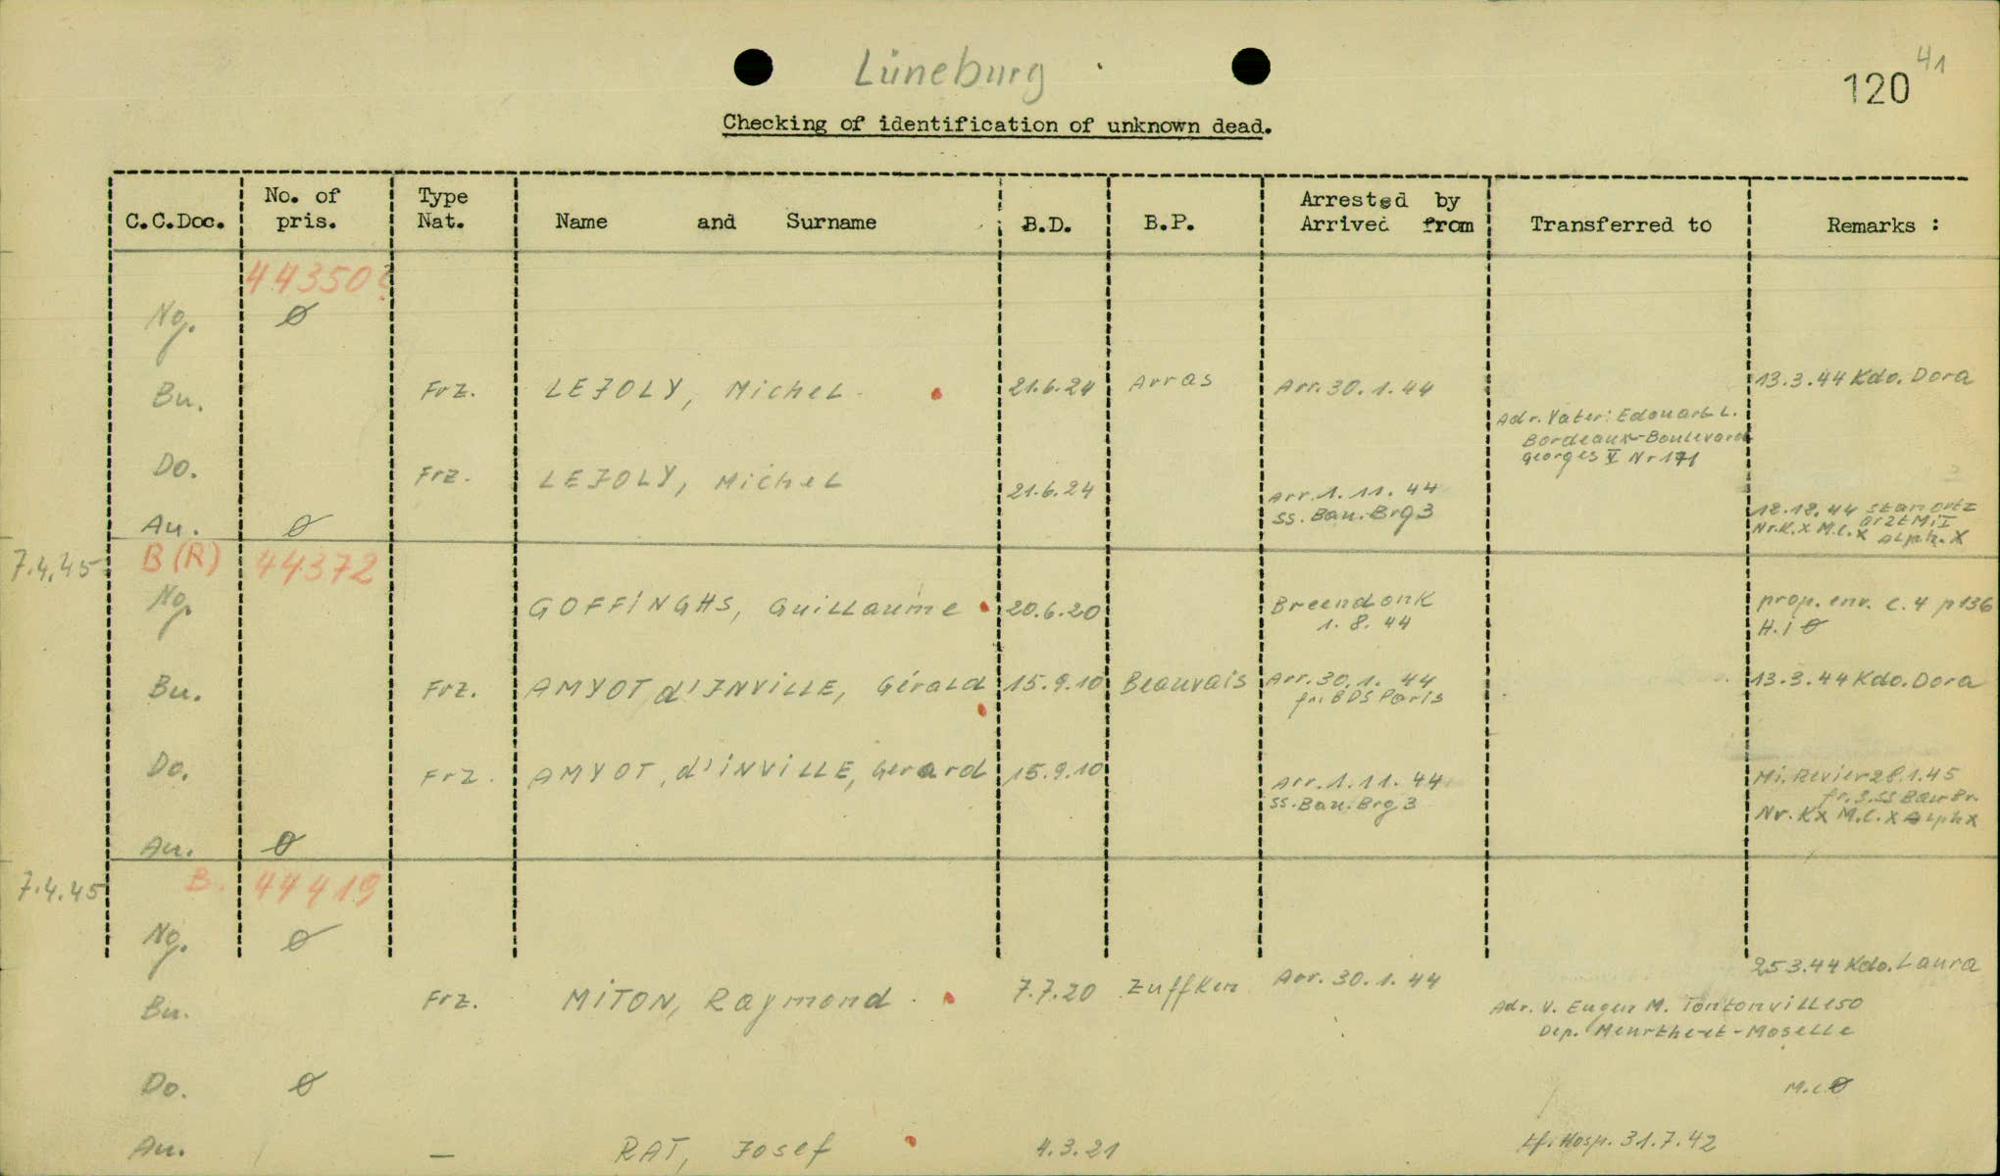 Lüneburg
120 41
Checking of identification of unknown dead.
C.C.Doc. No. of pris. Type Nat. Name and Surname B.D. B.P. Arrested by Arrived from Transferred to Remarks :
44350?
Ng. ø
Bu. Frz. LEJOLY, Michel 21.6.24 Arras Arr. 30.1.44 13.3.44 Kdo. Dora
Adr. Vater: Edouard L.
Bordeaux-Boulevard
Georges V Nr 171
Do. Frz. LEJOLY, Michel 21.6.24 Arr. 1.11.44
SS. Bau. Brg 3
Au. ø
Nr.K.X M.C.X Alph.X
7.4.45 B(R) 44372
Ng. GOFFINGHS, Guillaume 20.6.20 Breendonk
1.8.44
prop. env. c. 4 p 136
H.i ø
Bu. Frz. AMYOT d'INVILLE, Gérald 15.9.10 Beauvais Arr. 30.1.44 13.3.44 Kdo. Dora
fr. BDS Paris
Do. Frz. AMYOT, d'INVILLE, Gerard 15.9.10 Arr. 1.11.44
SS. Bau. Brg 3
Mi. Revier 28.1.45
fr. 3. SS Bau Br.
Nr. KX M.C.X Alph X
Au. ø
7.4.45 B. 44419
Ng. ø
Bu. Frz. MITON, Raymond 7.7.20 Zuffken Arr. 30.1.44 25 3.44 Kdo. Laura
Adr. V. Eugen M. Tontonville 50
Dep. Meurthe-et-Moselle
Do. ø M.C ø
Au. — RAT, Josef 4.3.21 Hosp. 31.7.42